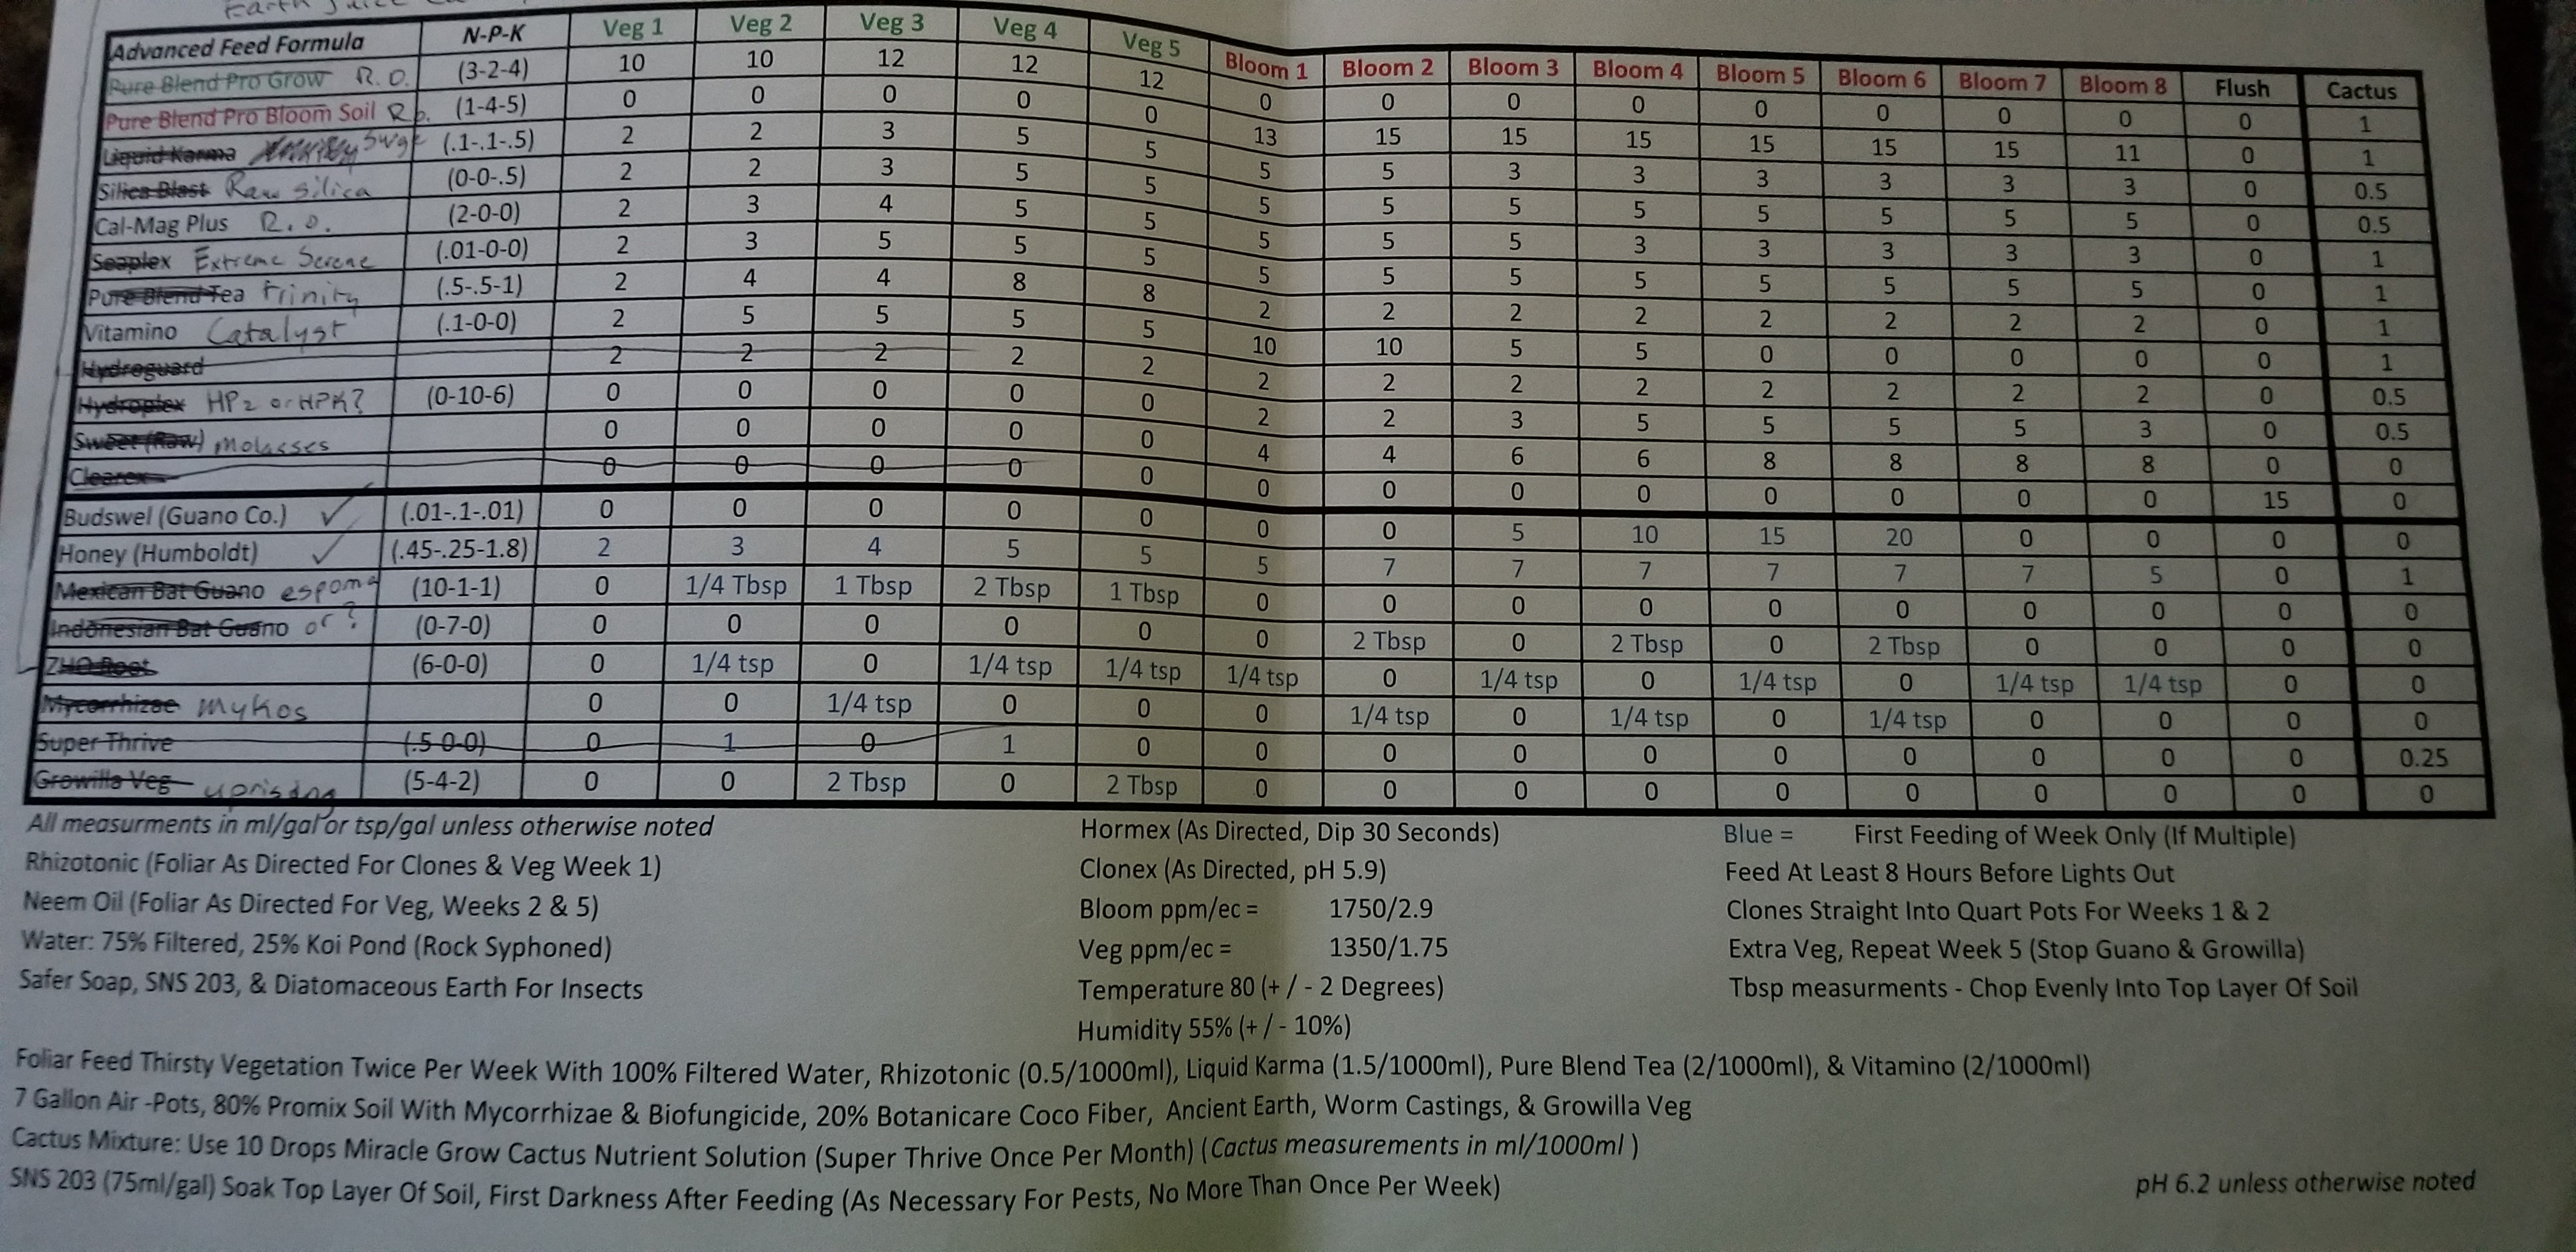 Earth Juice
Advanced Feed Formula N-P-K Veg 1 Veg 2 Veg 3 Veg 4 Veg 5 Bloom 1 Bloom 2 Bloom 3 Bloom 4 Bloom 5 Bloom 6 Bloom 7 Bloom 8 Flush Cactus
Pure Blend Pro Grow R.O. (3-2-4) 10 10 12 12 12 0 0 0 0 0 0 0 0 0 1
Pure Blend Pro Bloom Soil Rb. (1-4-5) 0 0 0 0 0 13 15 15 15 15 15 15 11 0 1
Liquid Karma (.1-.1-.5) 2 2 3 5 5 5 5 3 3 3 3 3 3 0 0.5
Silica Blast Raw silica (0-0-.5) 2 2 3 5 5 5 5 5 5 5 5 5 5 0 0.5
Cal-Mag Plus R.O. (2-0-0) 2 3 4 5 5 5 5 5 3 3 3 3 3 0 1
Seaplex Extreme Serene (.01-0-0) 2 3 5 5 5 5 5 5 5 5 5 5 5 0 1
Pure Blend Tea Trinity (.5-.5-1) 2 4 4 8 8 2 2 2 2 2 2 2 2 0 1
Vitamino Catalyst (.1-0-0) 2 5 5 5 5 10 10 5 5 0 0 0 0 0 1
Hydroguard 2 2 2 2 2 2 2 2 2 2 2 2 2 0 0.5
Hydroplex HP2 or HPK? (0-10-6) 0 0 0 0 0 2 2 3 5 5 5 5 3 0 0.5
Sweet (Raw) molasses 0 0 0 0 0 4 4 6 6 8 8 8 8 0 0
Clearex 0 0 0 0 0 0 0 0 0 0 0 0 0 15 0
Budswel (Guano Co.) ✓ (.01-.1-.01) 0 0 0 0 0 0 0 5 10 15 20 0 0 0 0
Honey (Humboldt) ✓ (.45-.25-1.8) 2 3 4 5 5 5 7 7 7 7 7 7 5 0 1
Mexican Bat Guano espoma (10-1-1) 0 1/4 Tbsp 1 Tbsp 2 Tbsp 1 Tbsp 0 0 0 0 0 0 0 0 0 0
Indonesian Bat Guano or? (0-7-0) 0 0 0 0 0 0 2 Tbsp 0 2 Tbsp 0 2 Tbsp 0 0 0 0
ZHO Root (6-0-0) 0 1/4 tsp 0 1/4 tsp 1/4 tsp 1/4 tsp 0 1/4 tsp 0 1/4 tsp 0 1/4 tsp 1/4 tsp 0 0
Mycorrhizae Mykos 0 0 1/4 tsp 0 0 0 1/4 tsp 0 1/4 tsp 0 1/4 tsp 0 0 0 0
Super Thrive (.5-0-0) 0 1 0 1 0 0 0 0 0 0 0 0 0 0 0.25
Growilla Veg uprising (5-4-2) 0 0 2 Tbsp 0 2 Tbsp 0 0 0 0 0 0 0 0 0 0
All measurments in ml/gal or tsp/gal unless otherwise noted
Rhizotonic (Foliar As Directed For Clones & Veg Week 1)
Neem Oil (Foliar As Directed For Veg, Weeks 2 & 5)
Water: 75% Filtered, 25% Koi Pond (Rock Syphoned)
Safer Soap, SNS 203, & Diatomaceous Earth For Insects
Hormex (As Directed, Dip 30 Seconds)
Clonex (As Directed, pH 5.9)
Bloom ppm/ec = 1750/2.9
Veg ppm/ec = 1350/1.75
Temperature 80 (+ / - 2 Degrees)
Humidity 55% (+ / - 10%)
Blue = First Feeding of Week Only (If Multiple)
Feed At Least 8 Hours Before Lights Out
Clones Straight Into Quart Pots For Weeks 1 & 2
Extra Veg, Repeat Week 5 (Stop Guano & Growilla)
Tbsp measurments - Chop Evenly Into Top Layer Of Soil
Foliar Feed Thirsty Vegetation Twice Per Week With 100% Filtered Water, Rhizotonic (0.5/1000ml), Liquid Karma (1.5/1000ml), Pure Blend Tea (2/1000ml), & Vitamino (2/1000ml)
7 Gallon Air -Pots, 80% Promix Soil With Mycorrhizae & Biofungicide, 20% Botanicare Coco Fiber, Ancient Earth, Worm Castings, & Growilla Veg
Cactus Mixture: Use 10 Drops Miracle Grow Cactus Nutrient Solution (Super Thrive Once Per Month) (Cactus measurements in ml/1000ml )
SNS 203 (75ml/gal) Soak Top Layer Of Soil, First Darkness After Feeding (As Necessary For Pests, No More Than Once Per Week)
pH 6.2 unless otherwise noted